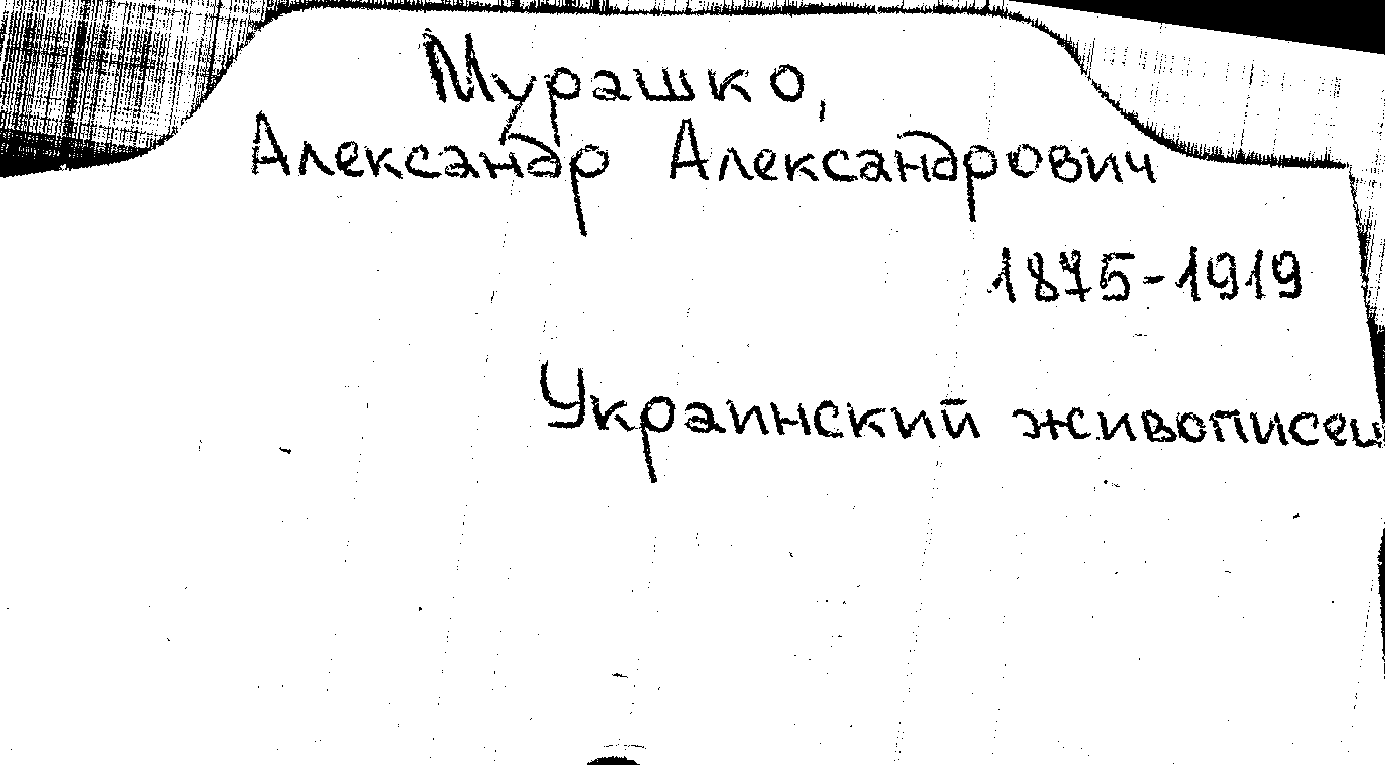 Мурашко,
Александр Александрович
1875-1919
Украинский живописец